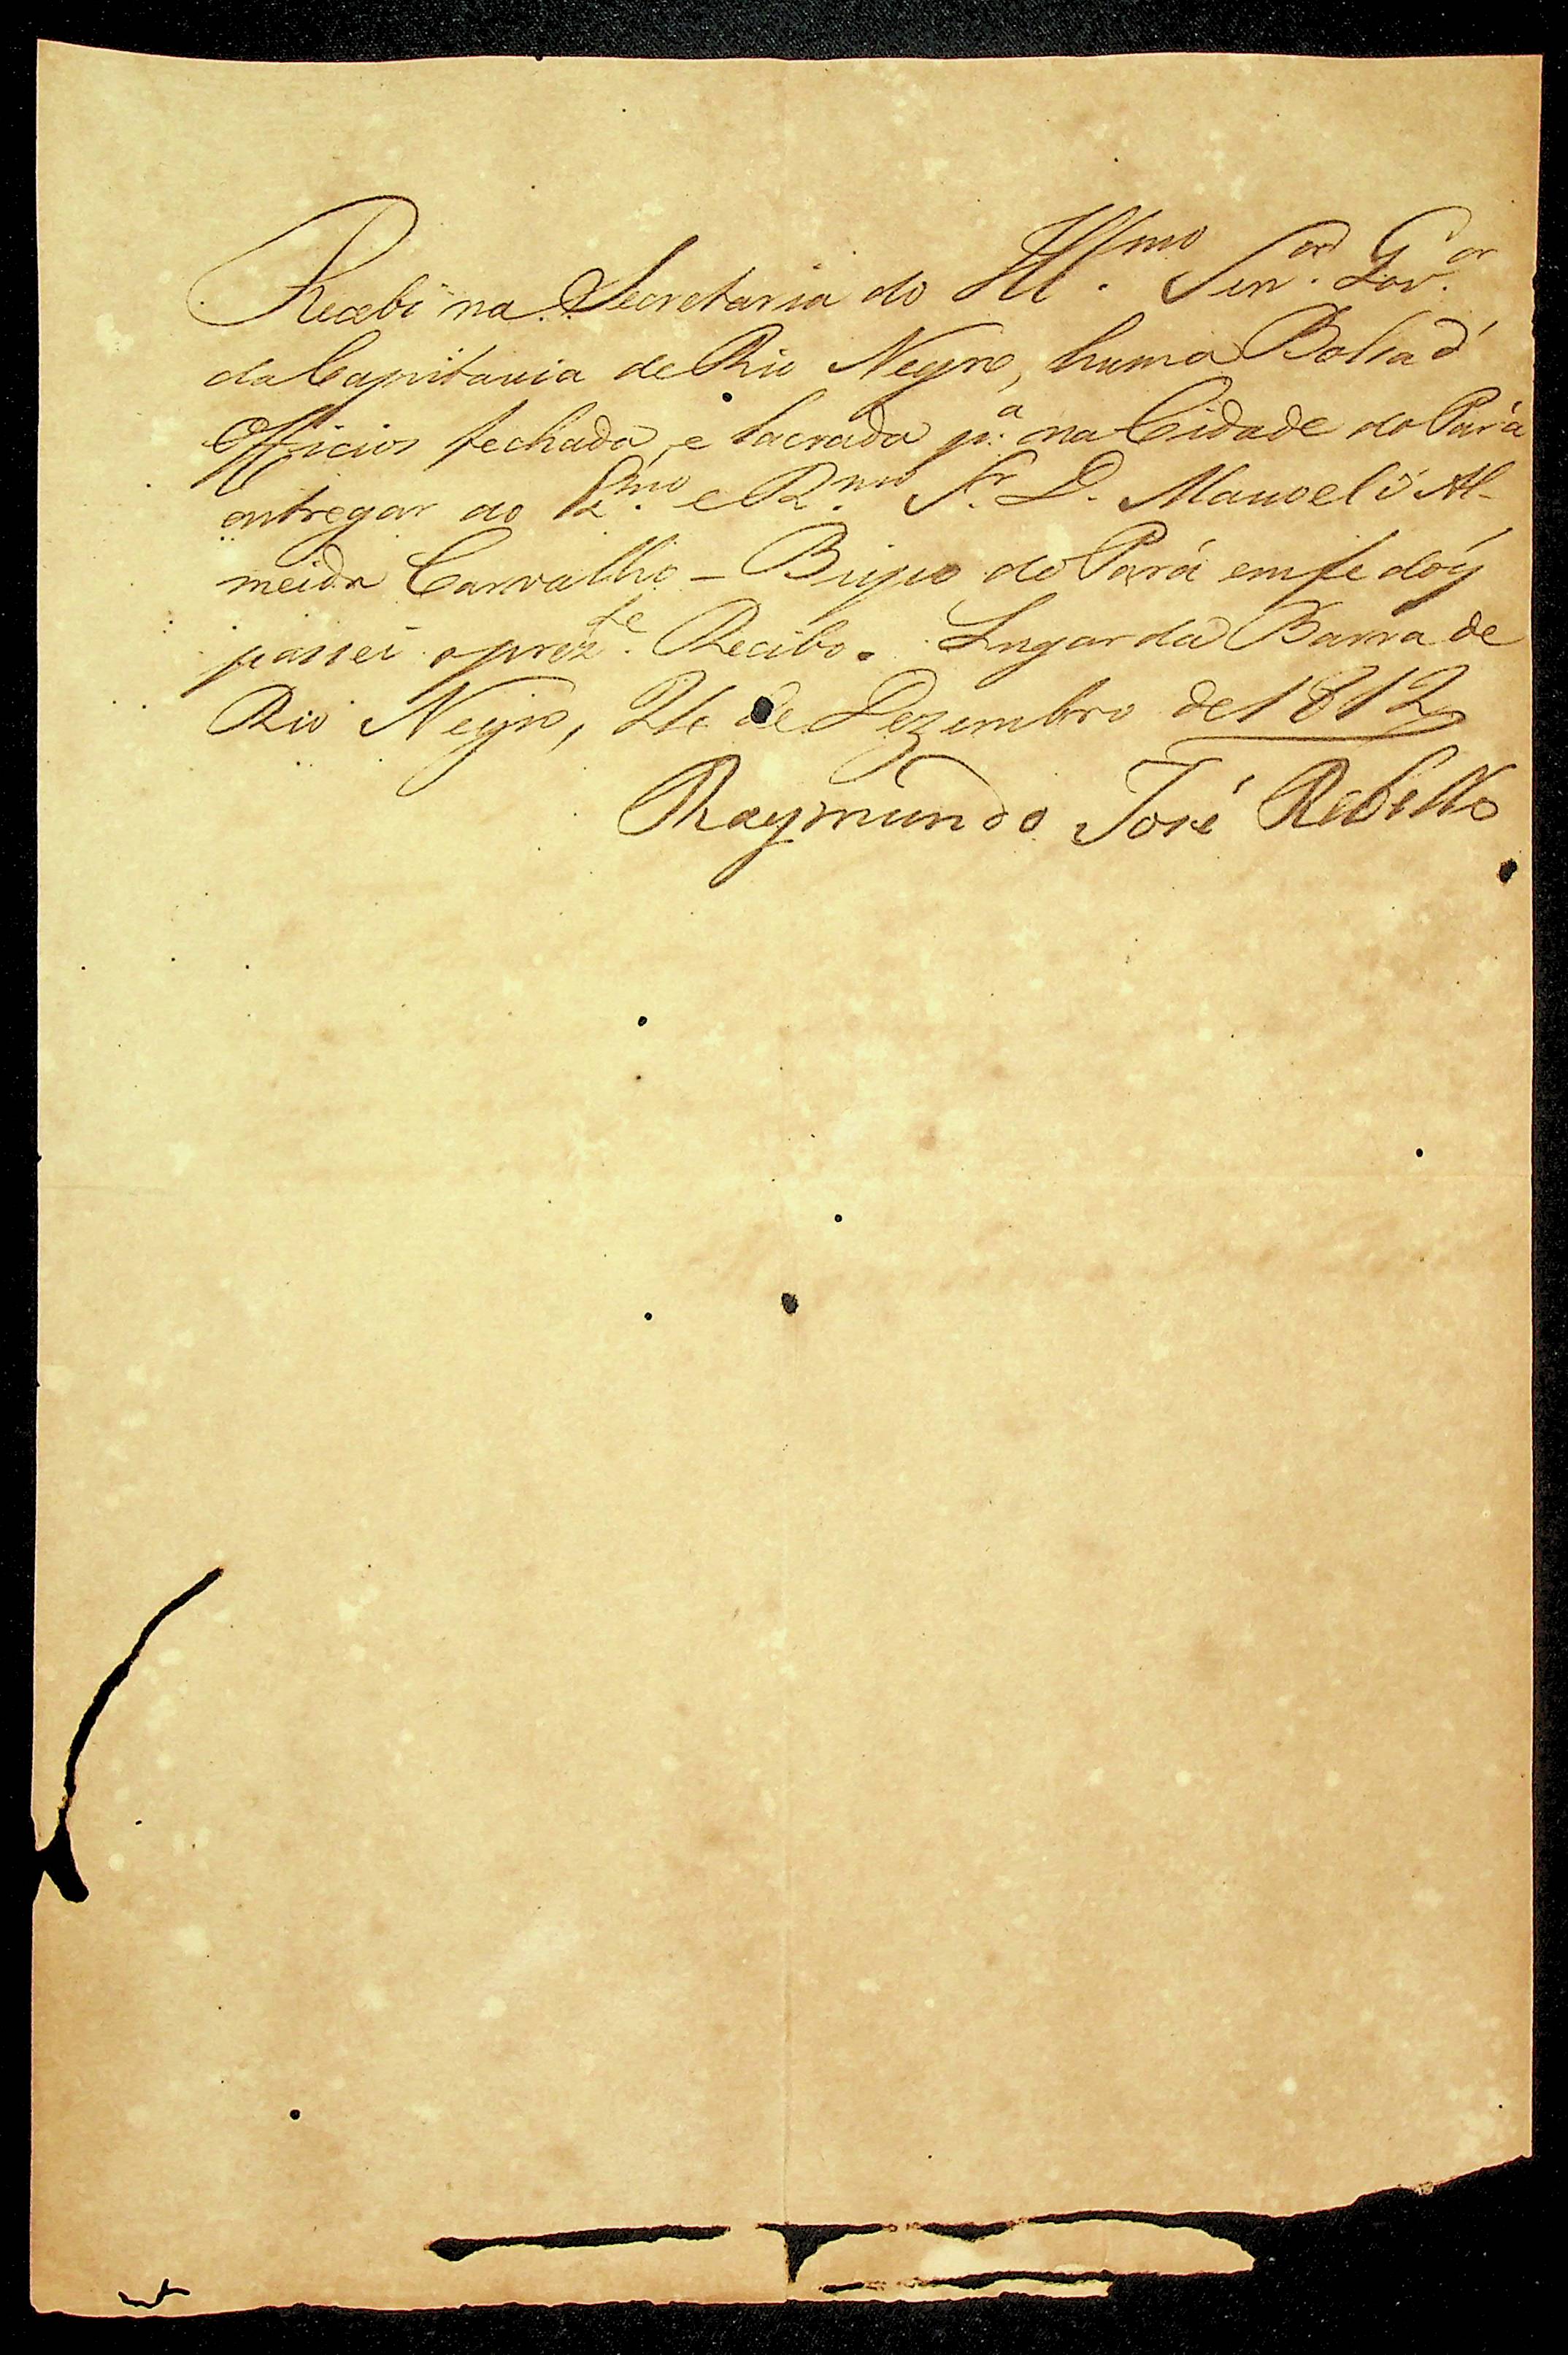 Recebi na Secretaria do Ill.mo Sen.or Gov.or
da Capitania de Rio Negro, huma Bolsa d'
Officios fechada, e lacrada p.a na Cidade do Pará
entregar ao Ex.mo e R.mo Sr. D. Manoel d' Al-
meida Carvalho – Bispo do Pará em fe do q
passei o prez.te Recibo. Lugar da Barra de
Rio Negro, de Dezembro de 1812
Raymundo José Rebello